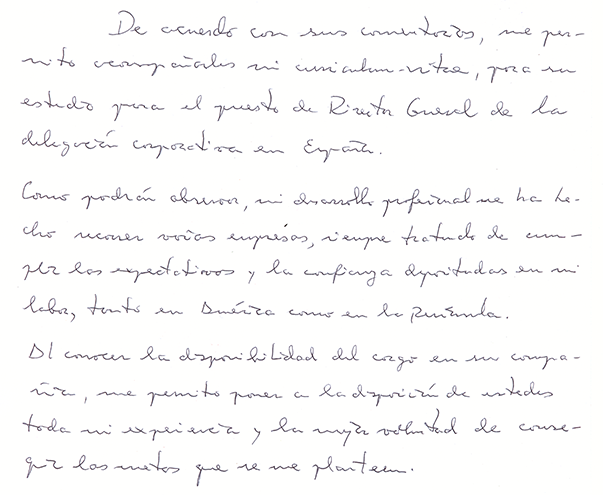 De acuerdo con sus comentarios, me per-
mito acompañarles mi curriculum-vitae, para su
estudio para el puesto de Director General de la
delegación corporativa en España.
Como podrán observar, mi desarrollo profesional me ha he-
cho recorrer varias empresas, siempre tratando de cum-
plir las expectativas y la confianza depositadas en mi
labor, tanto en América como en la Península.
Al conocer la disponibilidad del cargo en su compa-
ñía, me permito poner a la disposición de ustedes
toda mi experiencia y la mejor voluntad de conse-
guir las metas que se me planteen.